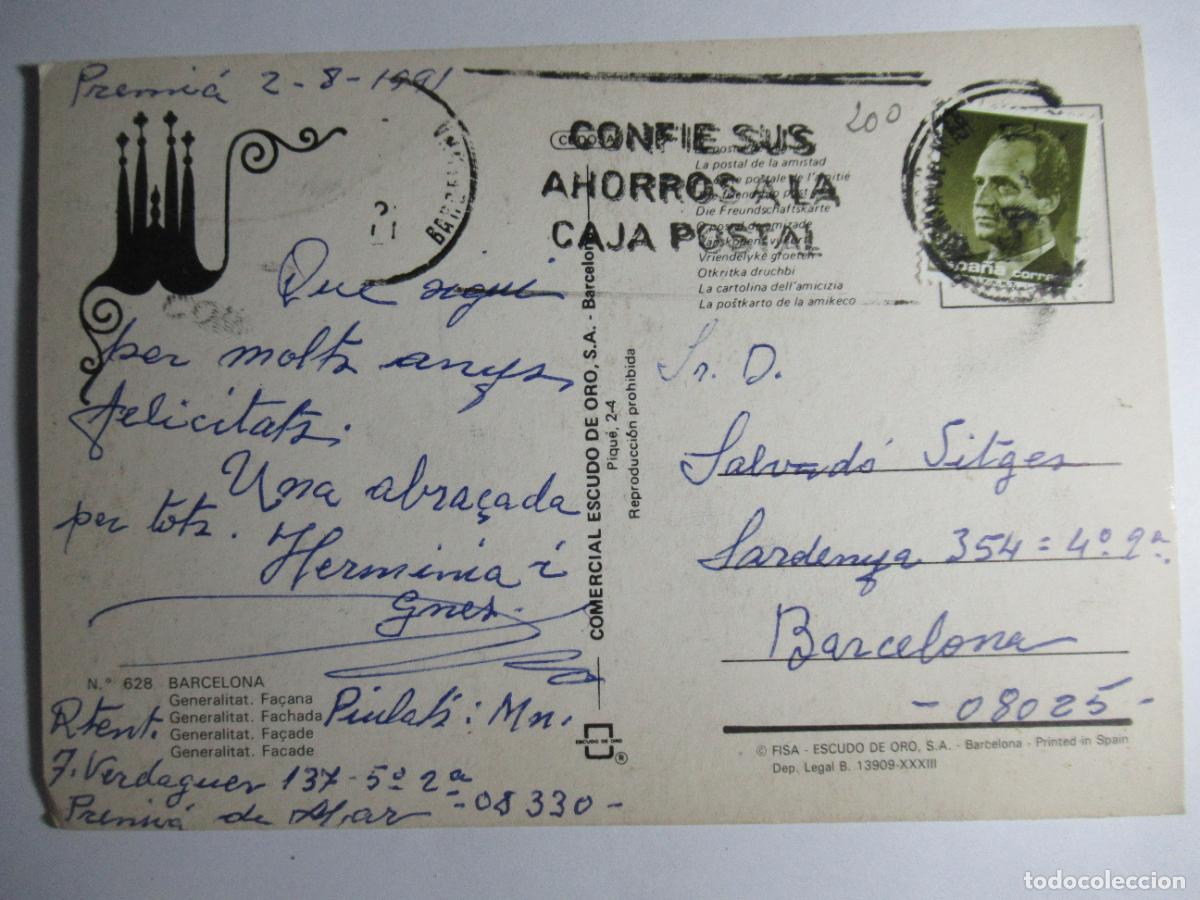 Premiá 2-8-1991
BARCELONA
CONFIE SUS
AHORROS A LA
CAJA POSTAL
200
España correos
La postal de la amistad
Die Freundschaftskarte
Vriendelyke groeten
Otkritka druchbi
La cartolina dell'amicizia
La poŝtkarto de la amikeco
Que sigui
per molts anys,
felicitats.
Una abraçada
per tots.
Herminia i
COMERCIAL ESCUDO DE ORO, S.A. - Barcelona
Piqué, 2-4
Reproducción prohibida
Sr. D.
Salvadó Sitges
Sardenya 354 = 4º 9ª
Barcelona
- 08025 -
N.º 628 BARCELONA
Generalitat. Façana
Generalitat. Fachada
Generalitat. Façade
Generalitat. Facade
Rtent. Piulats: Mn.
J. Verdaguer 137-5º 2ª
Premiá de Mar - 08330 -
ESCUDO DE ORO
®
© FISA - ESCUDO DE ORO, S.A. - Barcelona - Printed in Spain
Dep. Legal B. 13909-XXXIII
todocoleccion